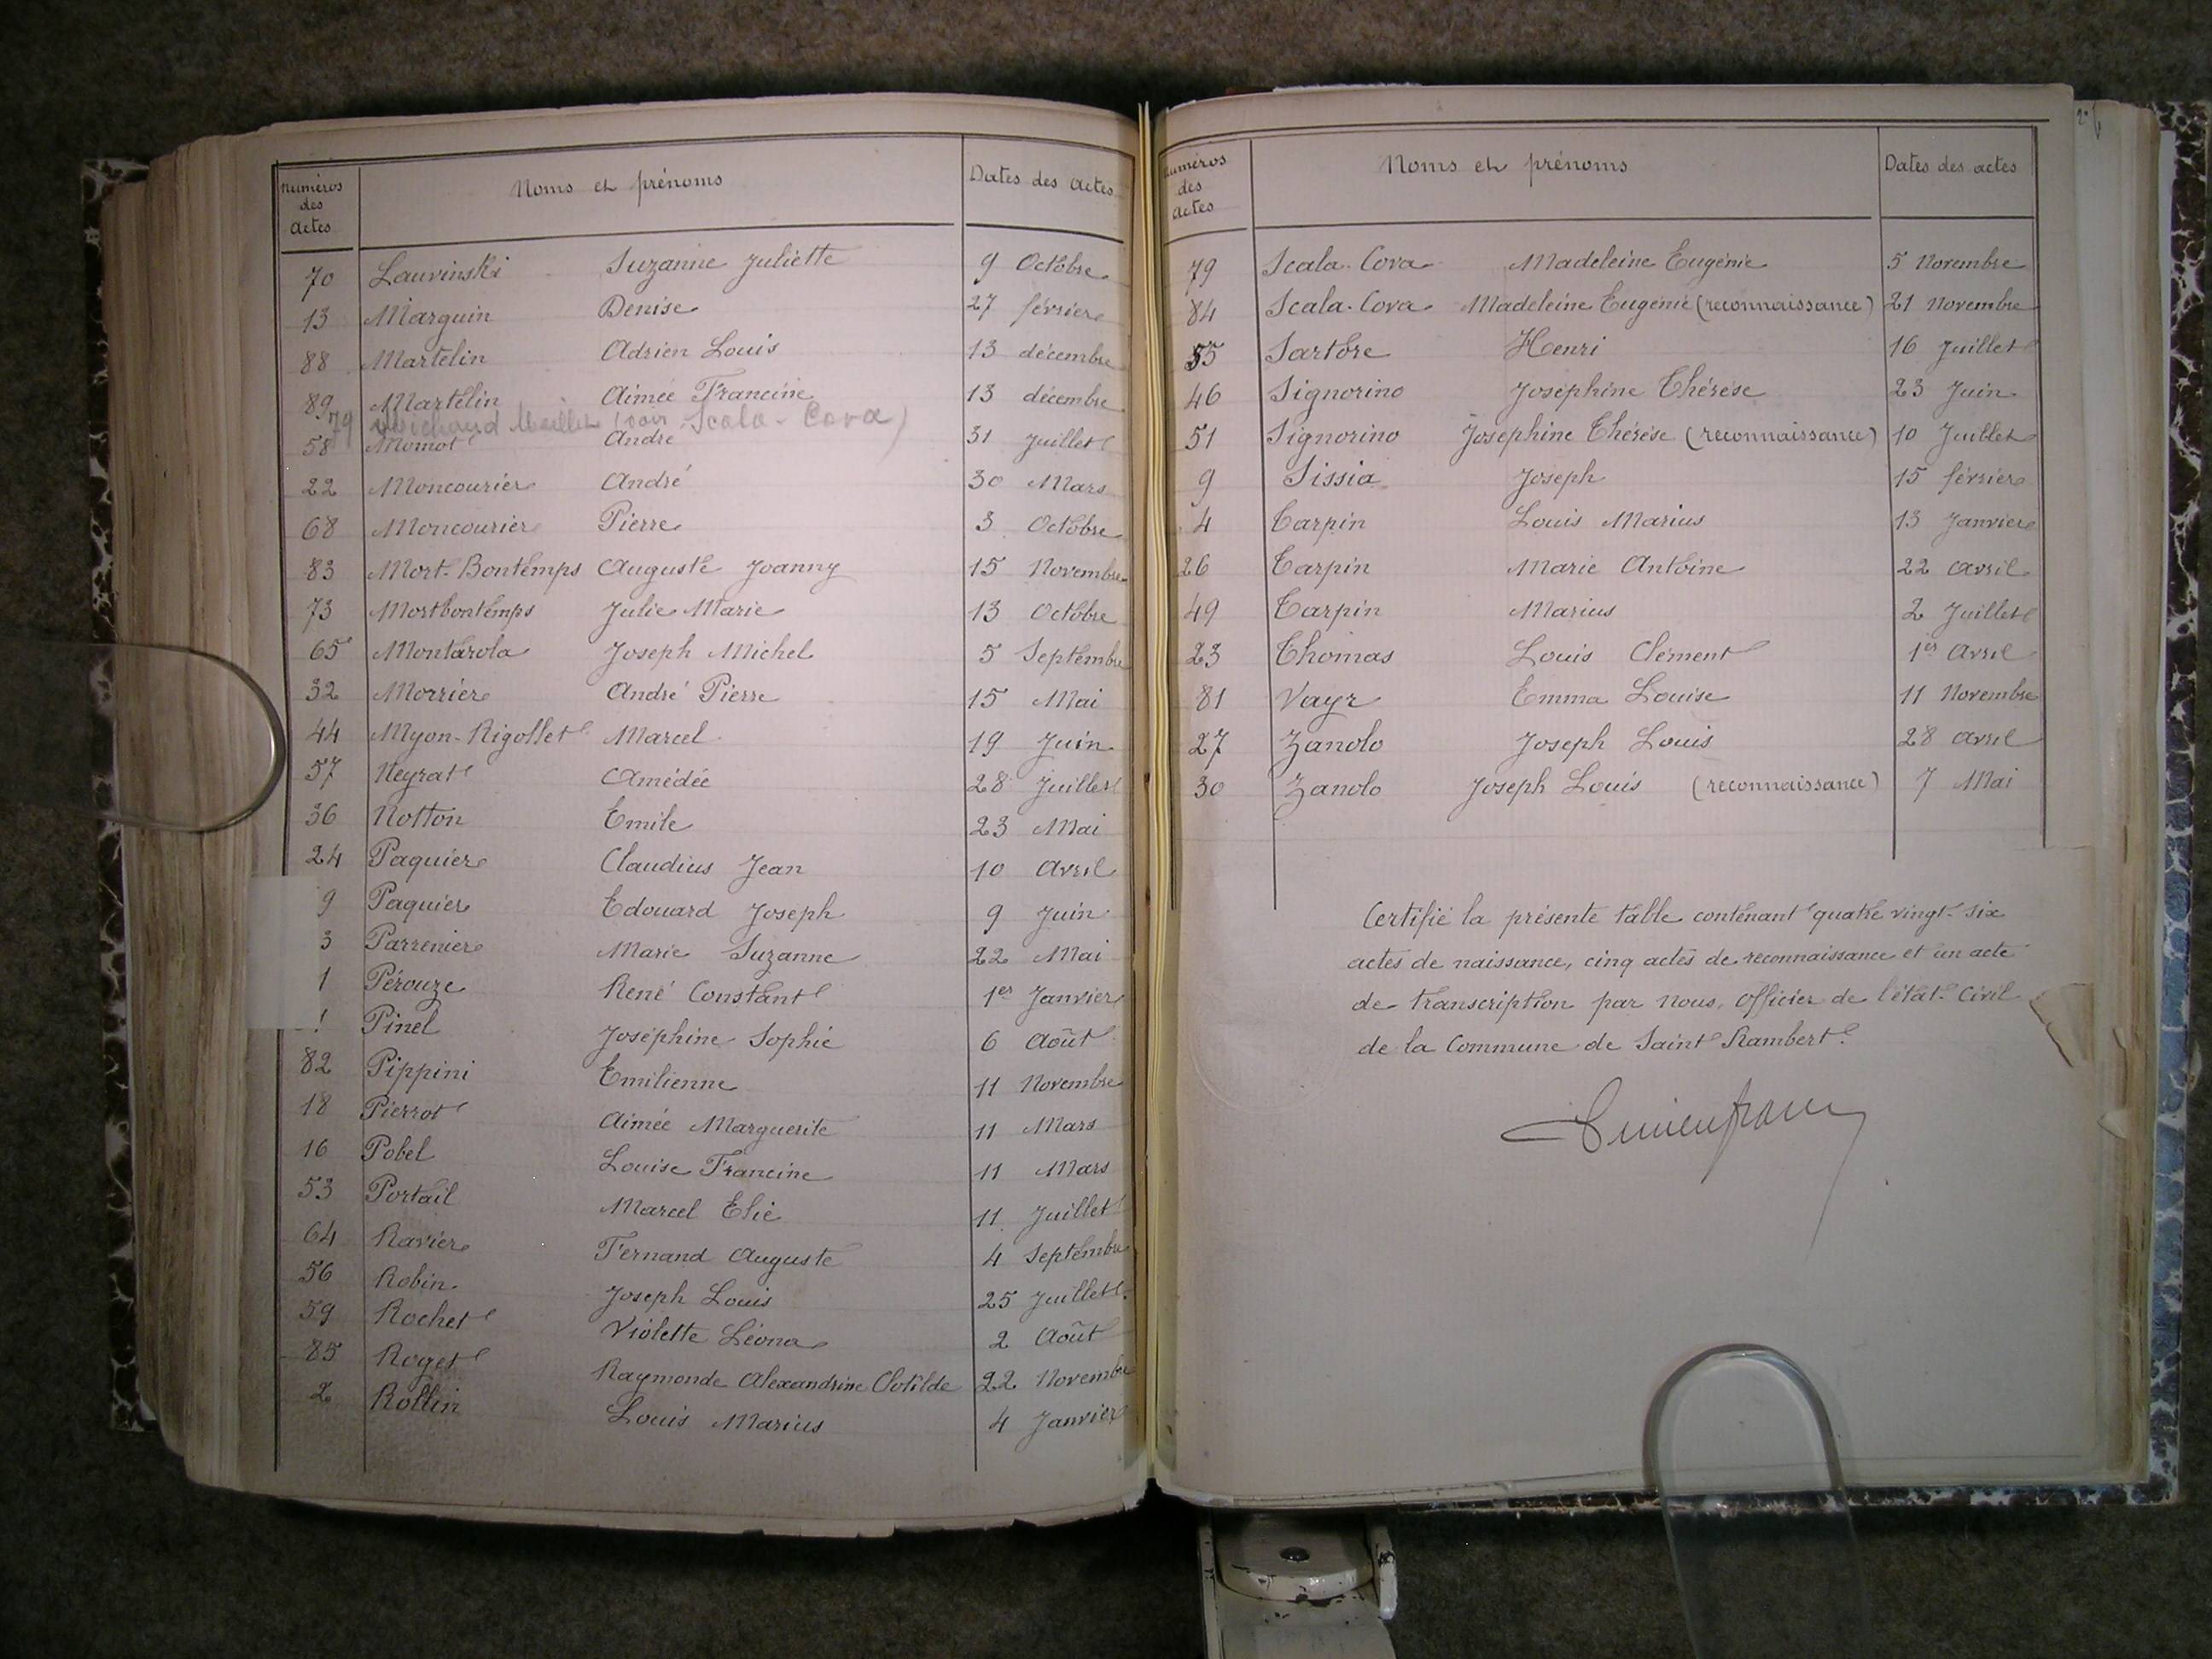 Numéros des Actes Noms et prénoms Dates des actes
70 Lauvinski Suzanne Juliette 9 Octobre
13 Marguin Denise 27 février
88 Martelin Adrien Louis 13 décembre
89 Martelin Aimée Francine 13 décembre
79 Michaud (voir Scala-Cova)
58 Momot André 31 Juillet
22 Moncourier André 30 Mars
68 Moncourier Pierre 3 Octobre
83 Mort-Bontemps Auguste Joanny 15 Novembre
73 Mortbontemps Julie Marie 13 Octobre
65 Montarola Joseph Michel 5 Septembre
32 Morrier André Pierre 15 Mai
44 Myon-Rigollet Marcel 19 Juin
57 Neyrat Amédée 28 Juillet
36 Notton Emile 23 Mai
24 Paquier Claudius Jean 10 Avril
9 Paquier Edouard Joseph 9 Juin
3 Parrenier Marie Suzanne 22 Mai
1 Pérouze René Constant 1er Janvier
Pinel Joséphine Sophie 6 Août
82 Pippini Emilienne 11 Novembre
18 Pierrot Aimée Marguerite 11 Mars
16 Pobel Louise Francine 11 Mars
53 Portail Marcel Elie 11 Juillet
64 Ravier Fernand Auguste 4 Septembre
56 Robin Joseph Louis 25 Juillet
59 Rochet Violette Léona 2 Août
85 Roget Raymonde Alexandrine Clotilde 22 Novembre
2 Rollin Louis Marius 4 Janvier
Numéros des actes Noms et prénoms Dates des actes
79 Scala-Cova Madeleine Eugénie 5 Novembre
84 Scala-Cova Madeleine Eugénie (reconnaissance) 21 Novembre
55 Sartore Henri 16 Juillet
46 Signorino Joséphine Thérèse 23 Juin
51 Signorino Joséphine Thérèse (reconnaissance) 10 Juillet
9 Sissia Joseph 15 février
4 Tarpin Louis Marius 13 Janvier
26 Tarpin Marie Antoine 22 avril
49 Tarpin Marius 2 Juillet
23 Thomas Louis Clément 1er Avril
81 Vayr Emma Louise 11 Novembre
27 Zanolo Joseph Louis 28 avril
30 Zanolo Joseph Louis (reconnaissance) 7 Mai
Certifié la présente table contenant quatre vingt-six
actes de naissance, cinq actes de reconnaissance et un acte
de transcription par nous, Officier de l'état-Civil
de la Commune de Saint Rambert.